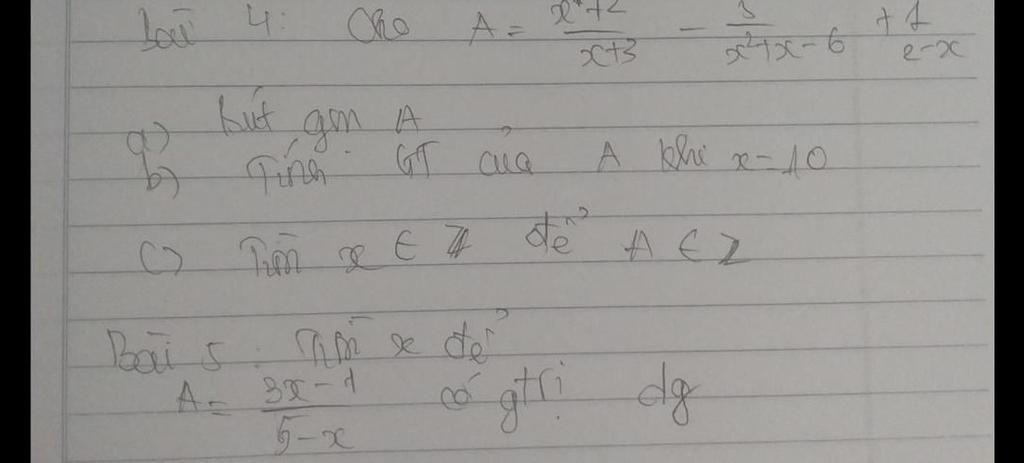 Bài 4: Cho A = \frac{x+2}{x+3} - \frac{5}{x²+x-6} + \frac{1}{2-x}
a) Rút gọn A
b) Tính GT của A khi x=10
c) Tìm x ∈ Z để A ∈ Z
Bài 5: Tìm x để
A = \frac{3x-1}{5-x} có gtrị dg